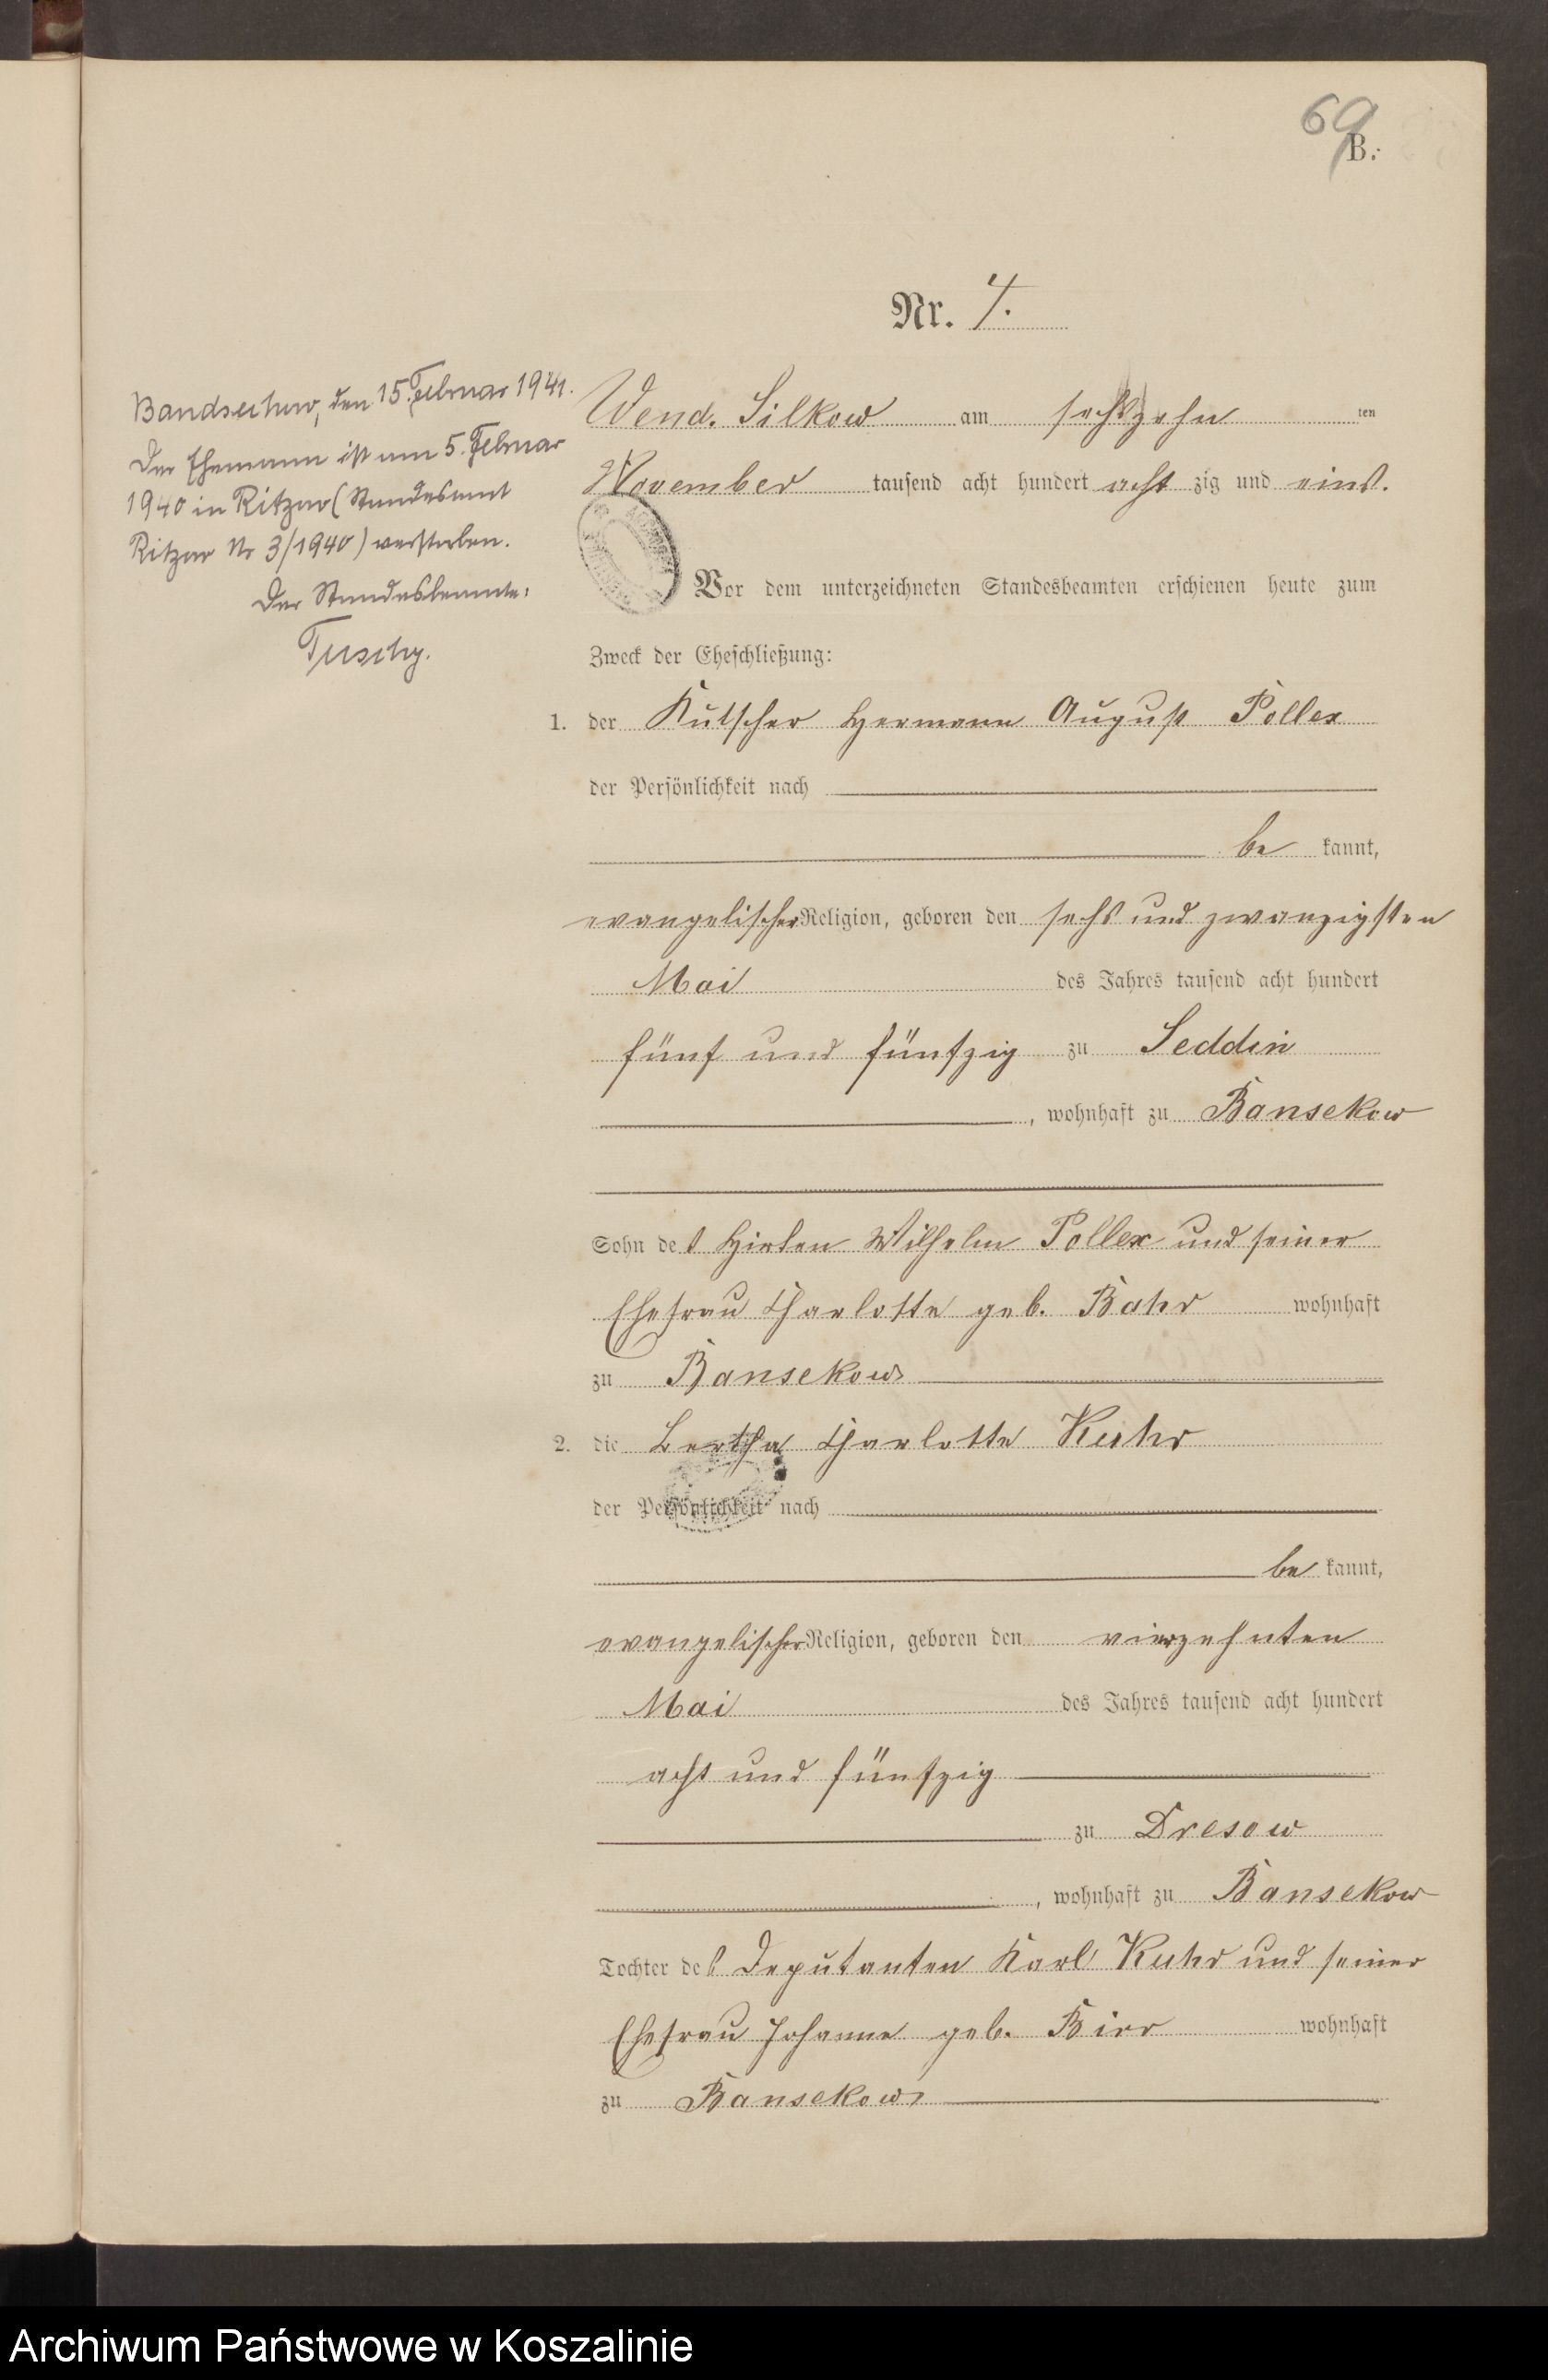 69
B.
Nr. 4.
Bandsechow, den 15. Februar 1941.
Der Ehemann ist am 5. Februar
1940 in Ritzow (Standesamt
Ritzow Nr 3/1940) verstorben.
Der Standesbeamte:
Tuschy.
Wend. Silkow am sechszehn ten
November tausend acht hundert acht zig und eins.
Vor dem unterzeichneten Standesbeamten erschienen heute zum
Zweck der Eheschließung:
1. der Kutscher Hermann August Pollex
der Persönlichkeit nach
be kannt,
evangelischer Religion, geboren den sechs und zwanzigsten
Mai des Jahres tausend acht hundert
fünf und fünfzig zu Seddin
, wohnhaft zu Bansekow
Sohn des Hirten Wilhelm Pollex und seiner
Ehefrau Charlotte geb. Bahr wohnhaft
zu Bansekow
2. die Bertha Charlotte Kuhr
der Persönlichkeit nach
be kannt,
evangelischer Religion, geboren den vierzehnten
Mai des Jahres tausend acht hundert
acht und fünfzig
zu Dresow
, wohnhaft zu Bansekow
Tochter des Deputanten Karl Kuhr und seiner
Ehefrau Johanne geb. Birr wohnhaft
zu Bansekow
Archiwum Państwowe w Koszalinie